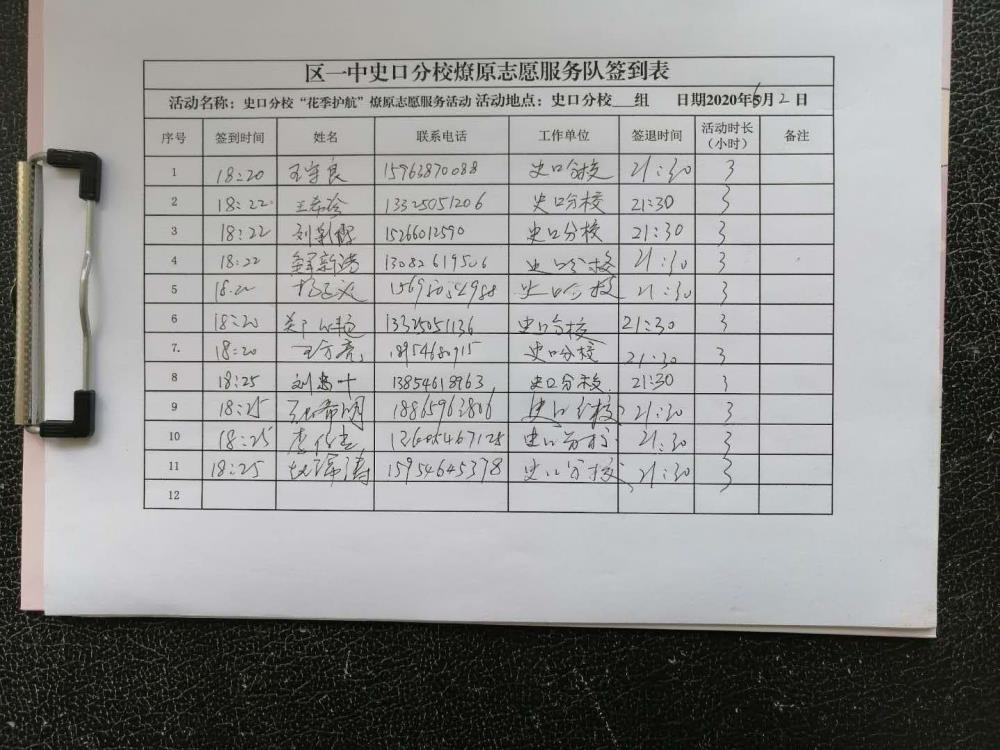 区一中史口分校燎原志愿服务队签到表
活动名称：史口分校“花季护航”燎原志愿服务活动 活动地点：史口分校__组 日期2020年6月2日
序号 签到时间 姓名 联系电话 工作单位 签退时间 活动时长（小时） 备注
1 18:20 王守良 15963870088 史口分校 21:30 3
2 18:22 王希玲 13325051206 史口分校 21:30 3
3 18:22 15266012590 史口分校 21:30 3
4 18:22 13082619506 史口分校 21:30 3
5 18:22 史口分校 21:30 3
6 18:20 13325051136 史口分校 21:30 3
7. 18:20 18954680915 史口分校 21:30 3
8 18:25 刘尚叶 13854618963 史口分校 21:30 3
9 18:25 18865963806 史口分校 21:30 3
10 18:25 13605467128 史口分校 21:30 3
11 18:25 15954645378 史口分校 21:30 3
12